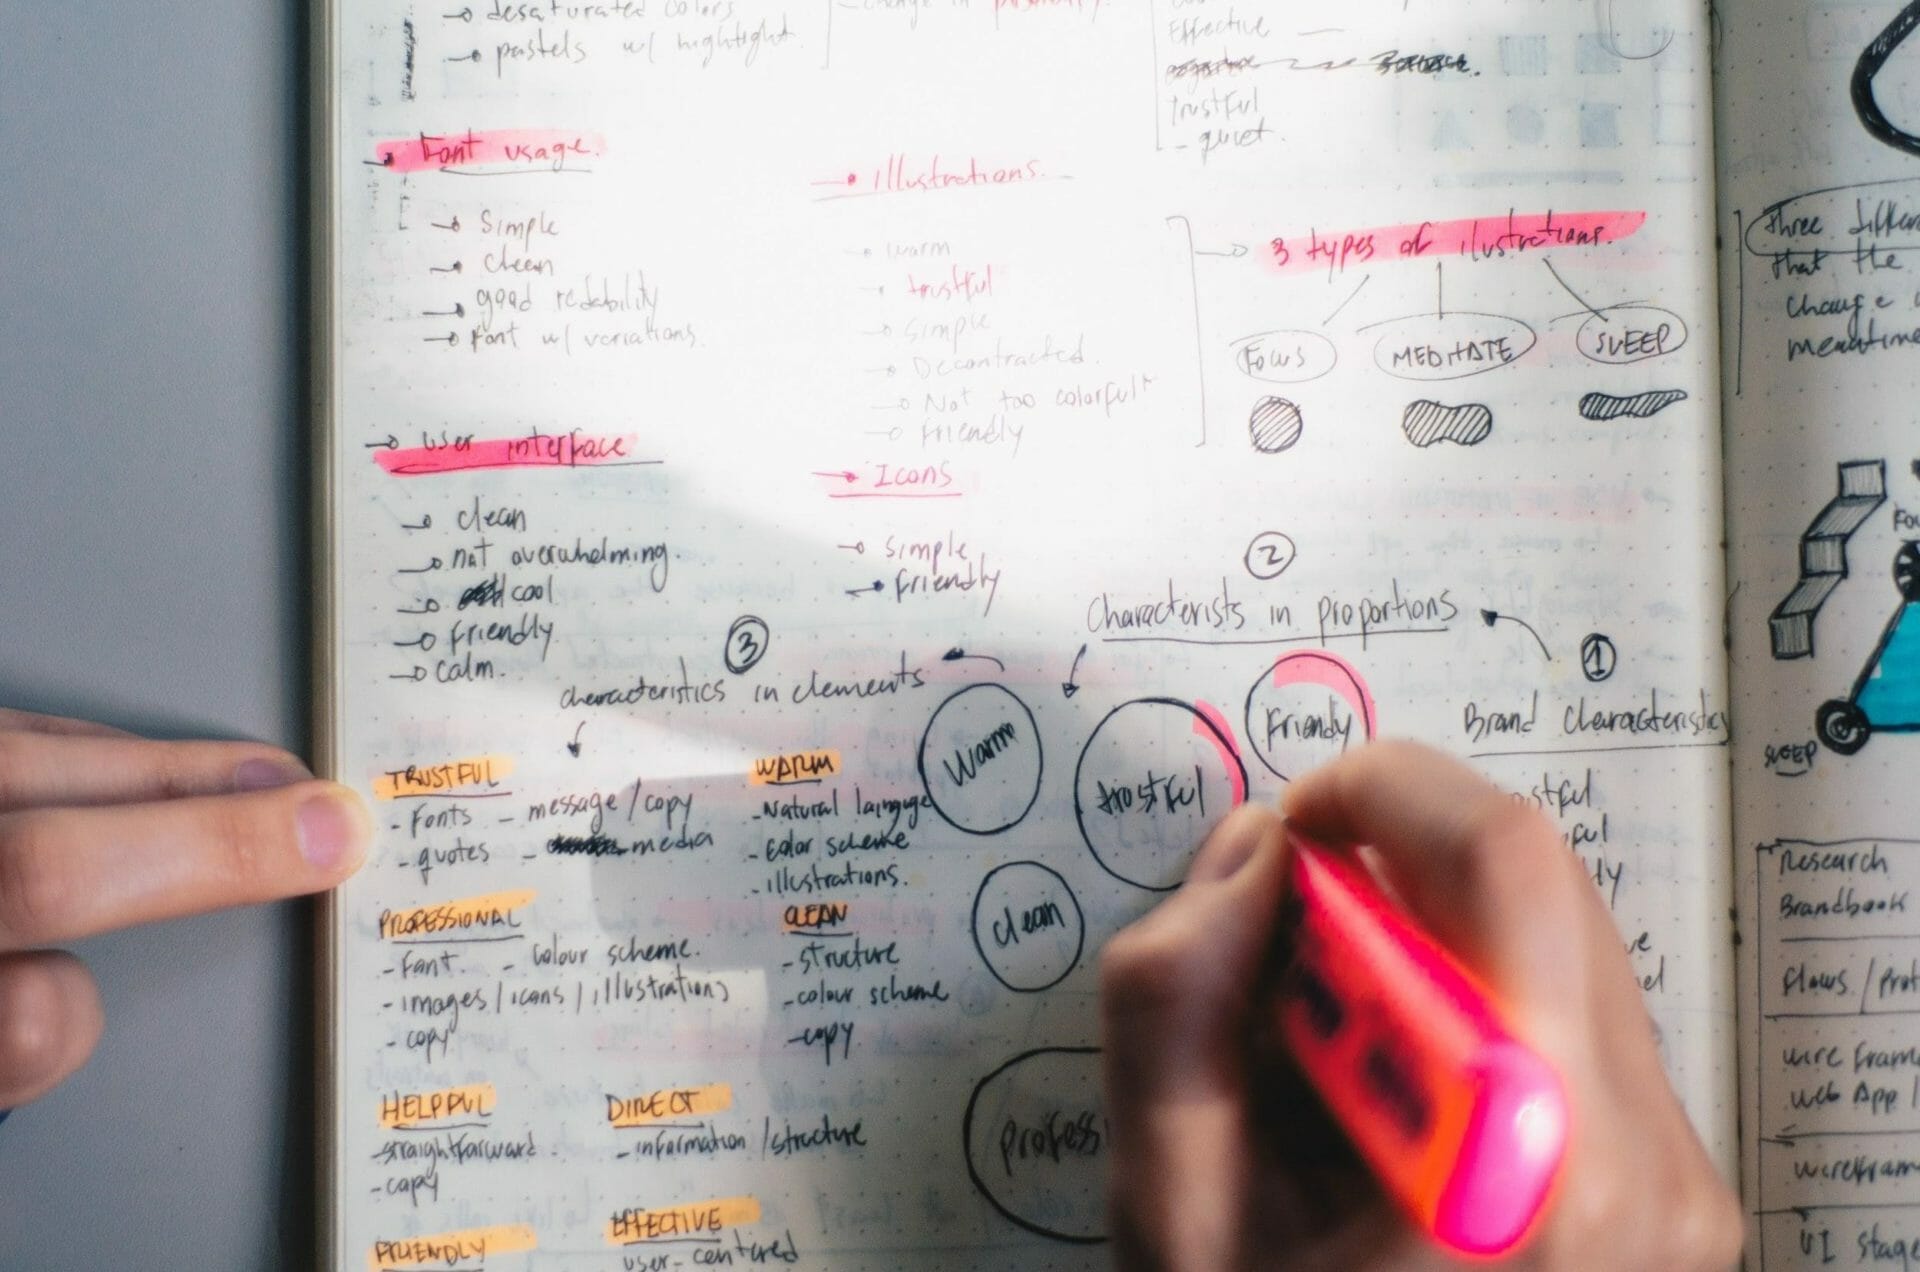 desaturated colors
pastels w/ hightlight
change in
Effective
trustful
- quiet.
Font usage.
Simple
clean
good redability
Font w/ variations.
user interface
clean
not overwhelming.
cool
Friendly
calm.
illustrations.
warm
trustful
Simple
Decontracted.
Not too colorful
Friendly
Icons
Simple
Friendly
3 types of ilustrations.
Focus
MEDITATE
SLEEP
2
Characterists in proportions
1
Brand Characteristics
3
characteristics in elements
Warm
trostful
Friendly
clean
professi
TRUSTFUL
- Fonts - message/copy
- quotes - media
WARM
- Natural languge
- Color scheme
- illustrations.
PROFESSIONAL
- Font. - colour scheme.
- images/icons/illustrations
- copy
CLEAN
- structure
- colour scheme
- copy
HELPFUL
- straightforward
- copy
DIRECT
- information/structure
FRIENDLY
EFFECTIVE
user-centered
three
that the
change
meantime
SLEEP
Research
Brandbook
flows/
wire
web App/
UI stage